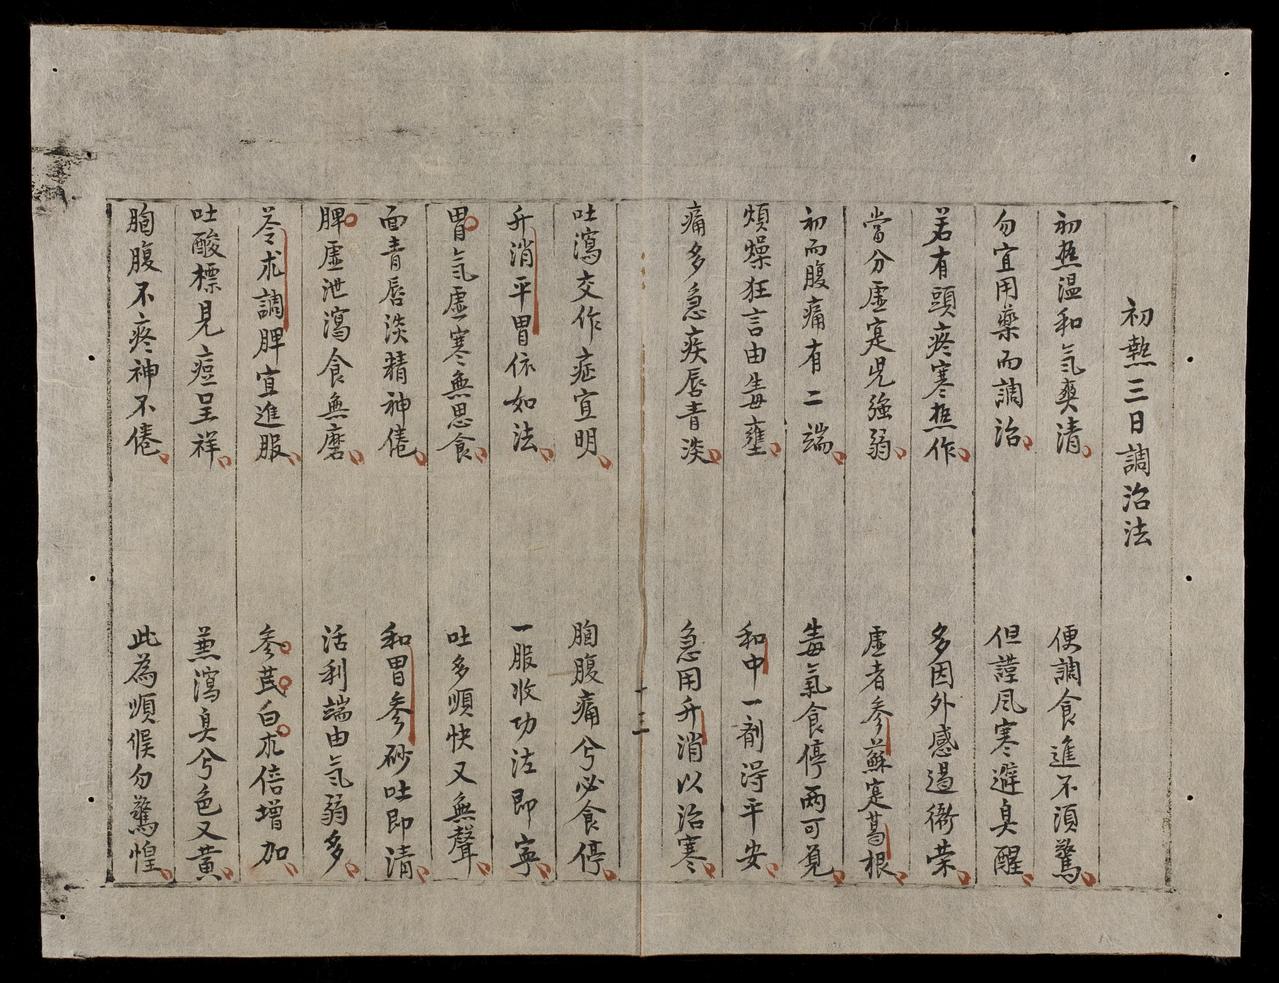 初熱三日調治法
初熱温和氣爽清 便調食進不須驚
勿宜用藥而調治 但謹風寒避臭醒
若有頭疼寒熱作 多因外感遏衛荣
當分虛寔児強弱 虛者參蘇寔葛根
初而腹痛有二端 毒氣食停两可見
煩燥狂言由毒壅 和中一劑淂平安
痛多急疾唇青淡 急用升消以治寒
十三
吐瀉交作症宜明 胸腹痛兮必食停
升消平胃依如法 一服收功法即寧
胃氣虛寒無思食 吐多順快又無聲
面青唇淡精神倦 和胃參砂吐即清
脾虛泄瀉食無磨 活利端由氣弱多
苓朮調脾宜進服 參芪白朮倍增加
吐酸標見痘呈祥 兼瀉臭兮色又黄
胸腹不疼神不倦 此為順候勿驚惶